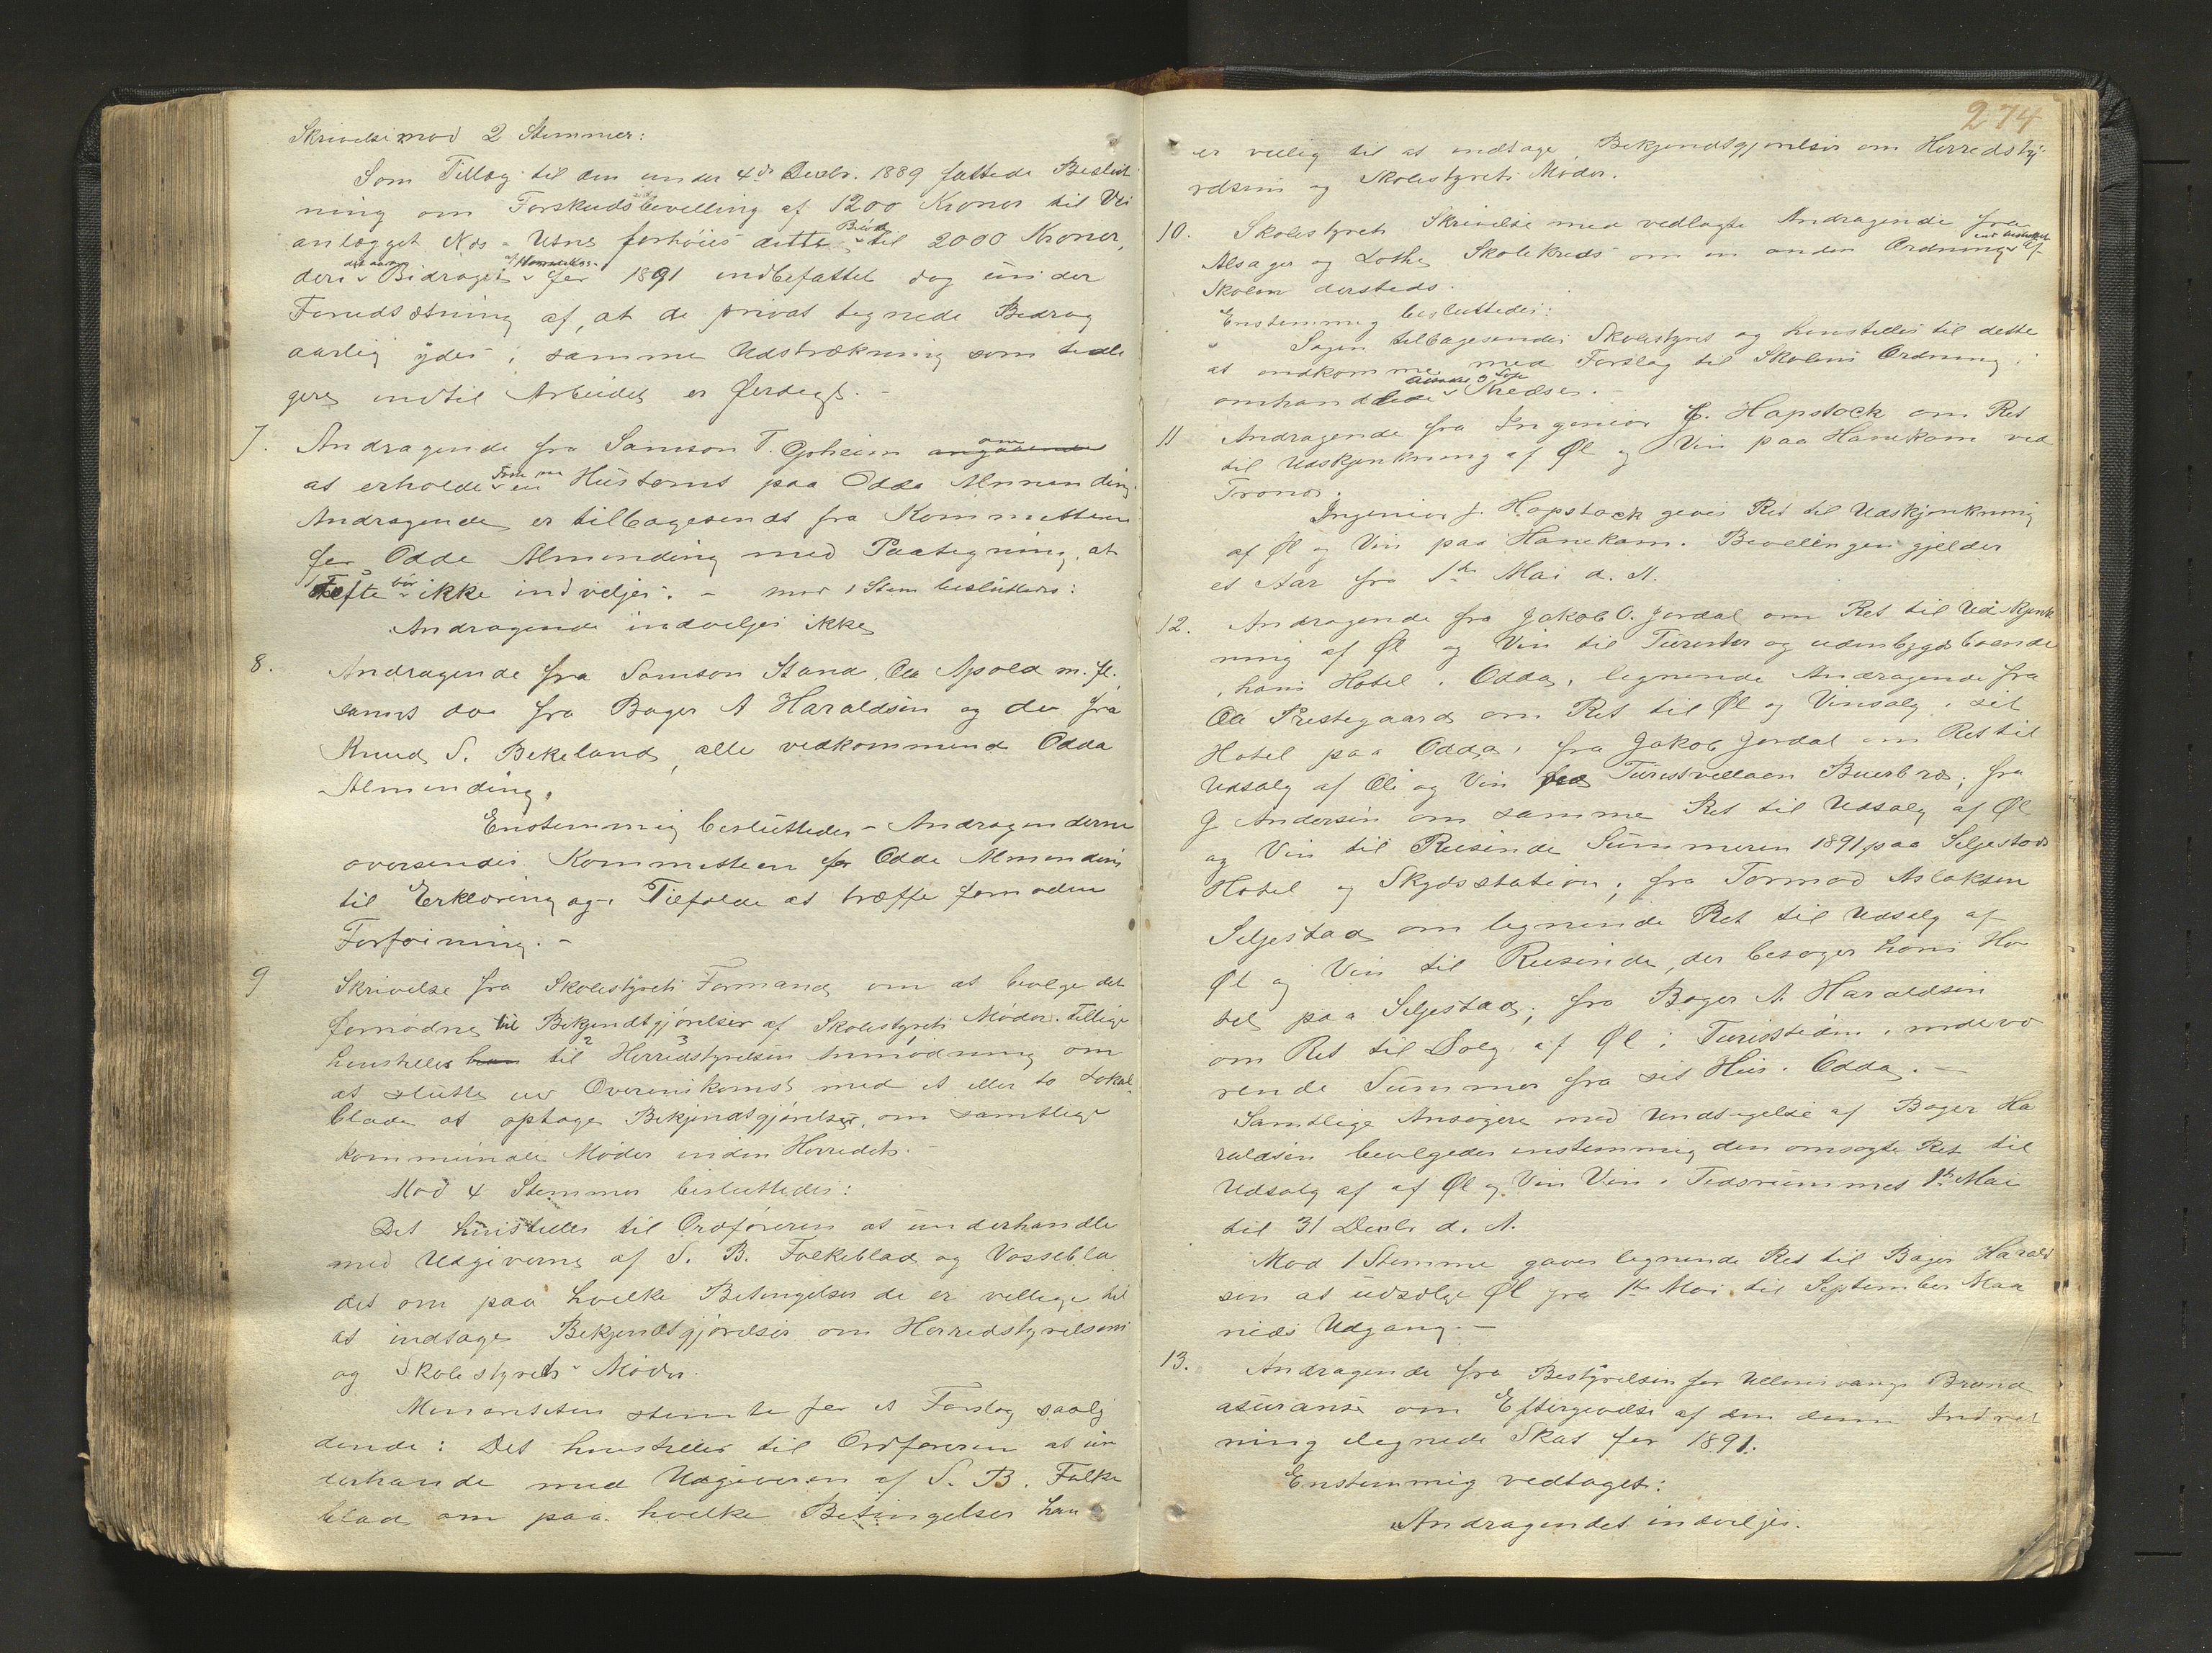 Skrivelse mod 2 Stemmer:
Som Tillæg til den under 4de Decbr. 1889 fattede Beslut
ning om Forskudsbevilling af 1200 Kroner til Vei
anlægget Næs - Utne forhöies dette Beløb til 2000 Kroner,
deri det aarlige Bidraget af Herredskas. for 1891 indbefattet dog under
Forudsætning af, at de privat tegnede Bidrag
aarlig ydes i samme Udstrækning som tidli
gere indtil Arbeidet er færdigt. -
7. Andragende fra Samson T. om
at erholde Feste paa en Hustomt paa Odda Almending.
Andragende er tilbagesendt fra Kommitteen
for Odde Almending med Paategning, at
Feste bör ikke indvilges. - mod 1 Stem besluttedes:
Andragende indvilges ikke
8. Andragende fra Samson Stana, Ola Apold m. fl.,
samt do fra Bager A Haraldsen og do fra
Knud S. Bekeland, alle vedkommende Odda
Almending.
Enstemmig besluttedes - Andragenderne
oversendes Kommitteen for Odde Almending
til Erklæring og i Tilfælde at træffe fornöden
Forföining. -
9 Skrivelse fra Skolestyrets Formand om at bevilge det
fornødne til Bekjendtgjörelser af Skolestyrets Möder. Tillige
henstilles til Herredstyrelsen Anmodning om
at slutte Overenskomst med et eller to Lokal
blade at optage Bekjendtgjörelser om samtlige
kommunale Möder inden Herredet. -
Mod 4 Stemmer besluttedes:
Det henstilles til Ordföreren at underhandle
med Udgiverne af S. B. Folkeblad og Vossebla
det om paa hvilke Betingelser de er villige til
at indtage Bekjendtgjörelser om Herredstyrelsens
og Skolestyrets Möder.
Minoriteten stemte for et Forslag saaly
dende: Det henstilles til Ordföreren at un
derhande med Udgiveren af S. B. Folke
blad om paa hvilke Betingelser han
274
er villig til at indtage Bekjendtgjörelser om Herredsty
relsens og Skolestyrets Möder.
10. Skolestyrets Skrivelse med vedlagte Andragende fra
Alsager og Lothe Skolekreds om en anden Ordning af
Skolen dersteds.
Enstemmig besluttedes:
Sagen tilbagesendes Skolestyret og henstilles til dette
at indkomme med Forslag til Skolens Ordning i
omhandlede Kredse. -
11 Andragende fra Ingeniør J. Hapstock om Ret
til Udskjenkning af Øl og Vin paa Hanekam ved
Tronæs.
Ingeniør J. Hapstock gives Ret til Udskjenkning
af Øl og Vin paa Hanekam. Bevilingen gjelder
et Aar fra 1de Mai d. A.
12. Andragende fra Jakob O. Jordal om Ret til Udskjenk
ning af Øl og Vin til Turister og udenbygdsboende
i hans Hotel i Odda, lignende Andragende fra
Ola Prestegaard om Ret til Øl og Vinsalg i sit
Hotel paa Odda, fra Jakob Jordal om Ret til
Udsalg af Øl og Vin ved Turistvillaen Buerbræ; fra
G Andersen om samme Ret til Udsalg af Øl
og Vin til Reisende Sommeren 1891 paa Seljestad
Hotel og Skydsstation; fra Tormod Aslaksen
Seljestad om lignende Ret til Udsalg af
Øl og Vin til Reisende, der besøger hans Ho
tel paa Seljestad; fra Bager A. Haraldsen
om Ret til Salg af Øl i Turisttiden i indevæ
rende Sommer fra sit Hus i Odda. -
Samtlige Ansøgere med Undtagelse af Bager Ha
raldsen bevilgedes enstemmig den omsøgte Ret til
Udsalg af af Øl og Vin Vin i Tidsrummet 1ste Mai
til 31 Decbr d. A.
Mod 1 Stemme gaves lignende Ret til Bager Harald
sen at udsælge Øl fra 1ste Mai til September Maa
neds Udgang. -
13. Andragende fra Bestyrelsen for Ullensvangs Brand
asuranse om Eftergivelse af den denne Indret
ning ilignede Skat for 1891.
Enstemmig vedtaget:
Andragendet indvilges.